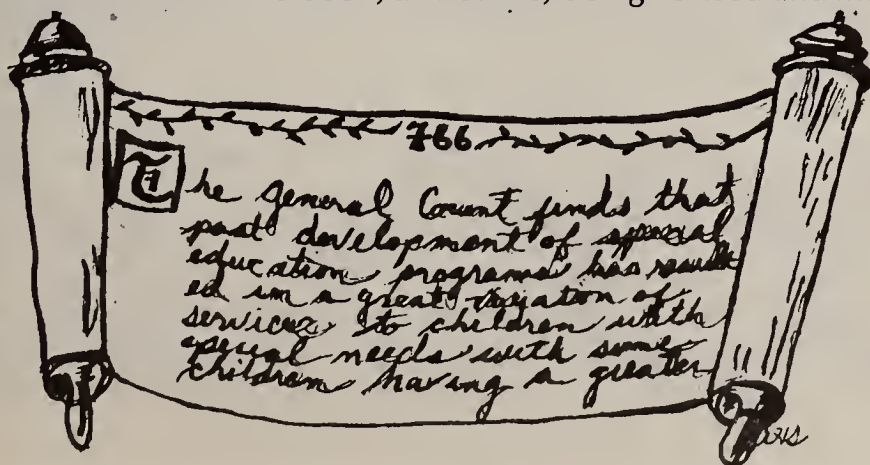 766
The General Court finds that
past development of special
education programs has result
ed in a great variation of
services to children with
special needs with some
children having a greater